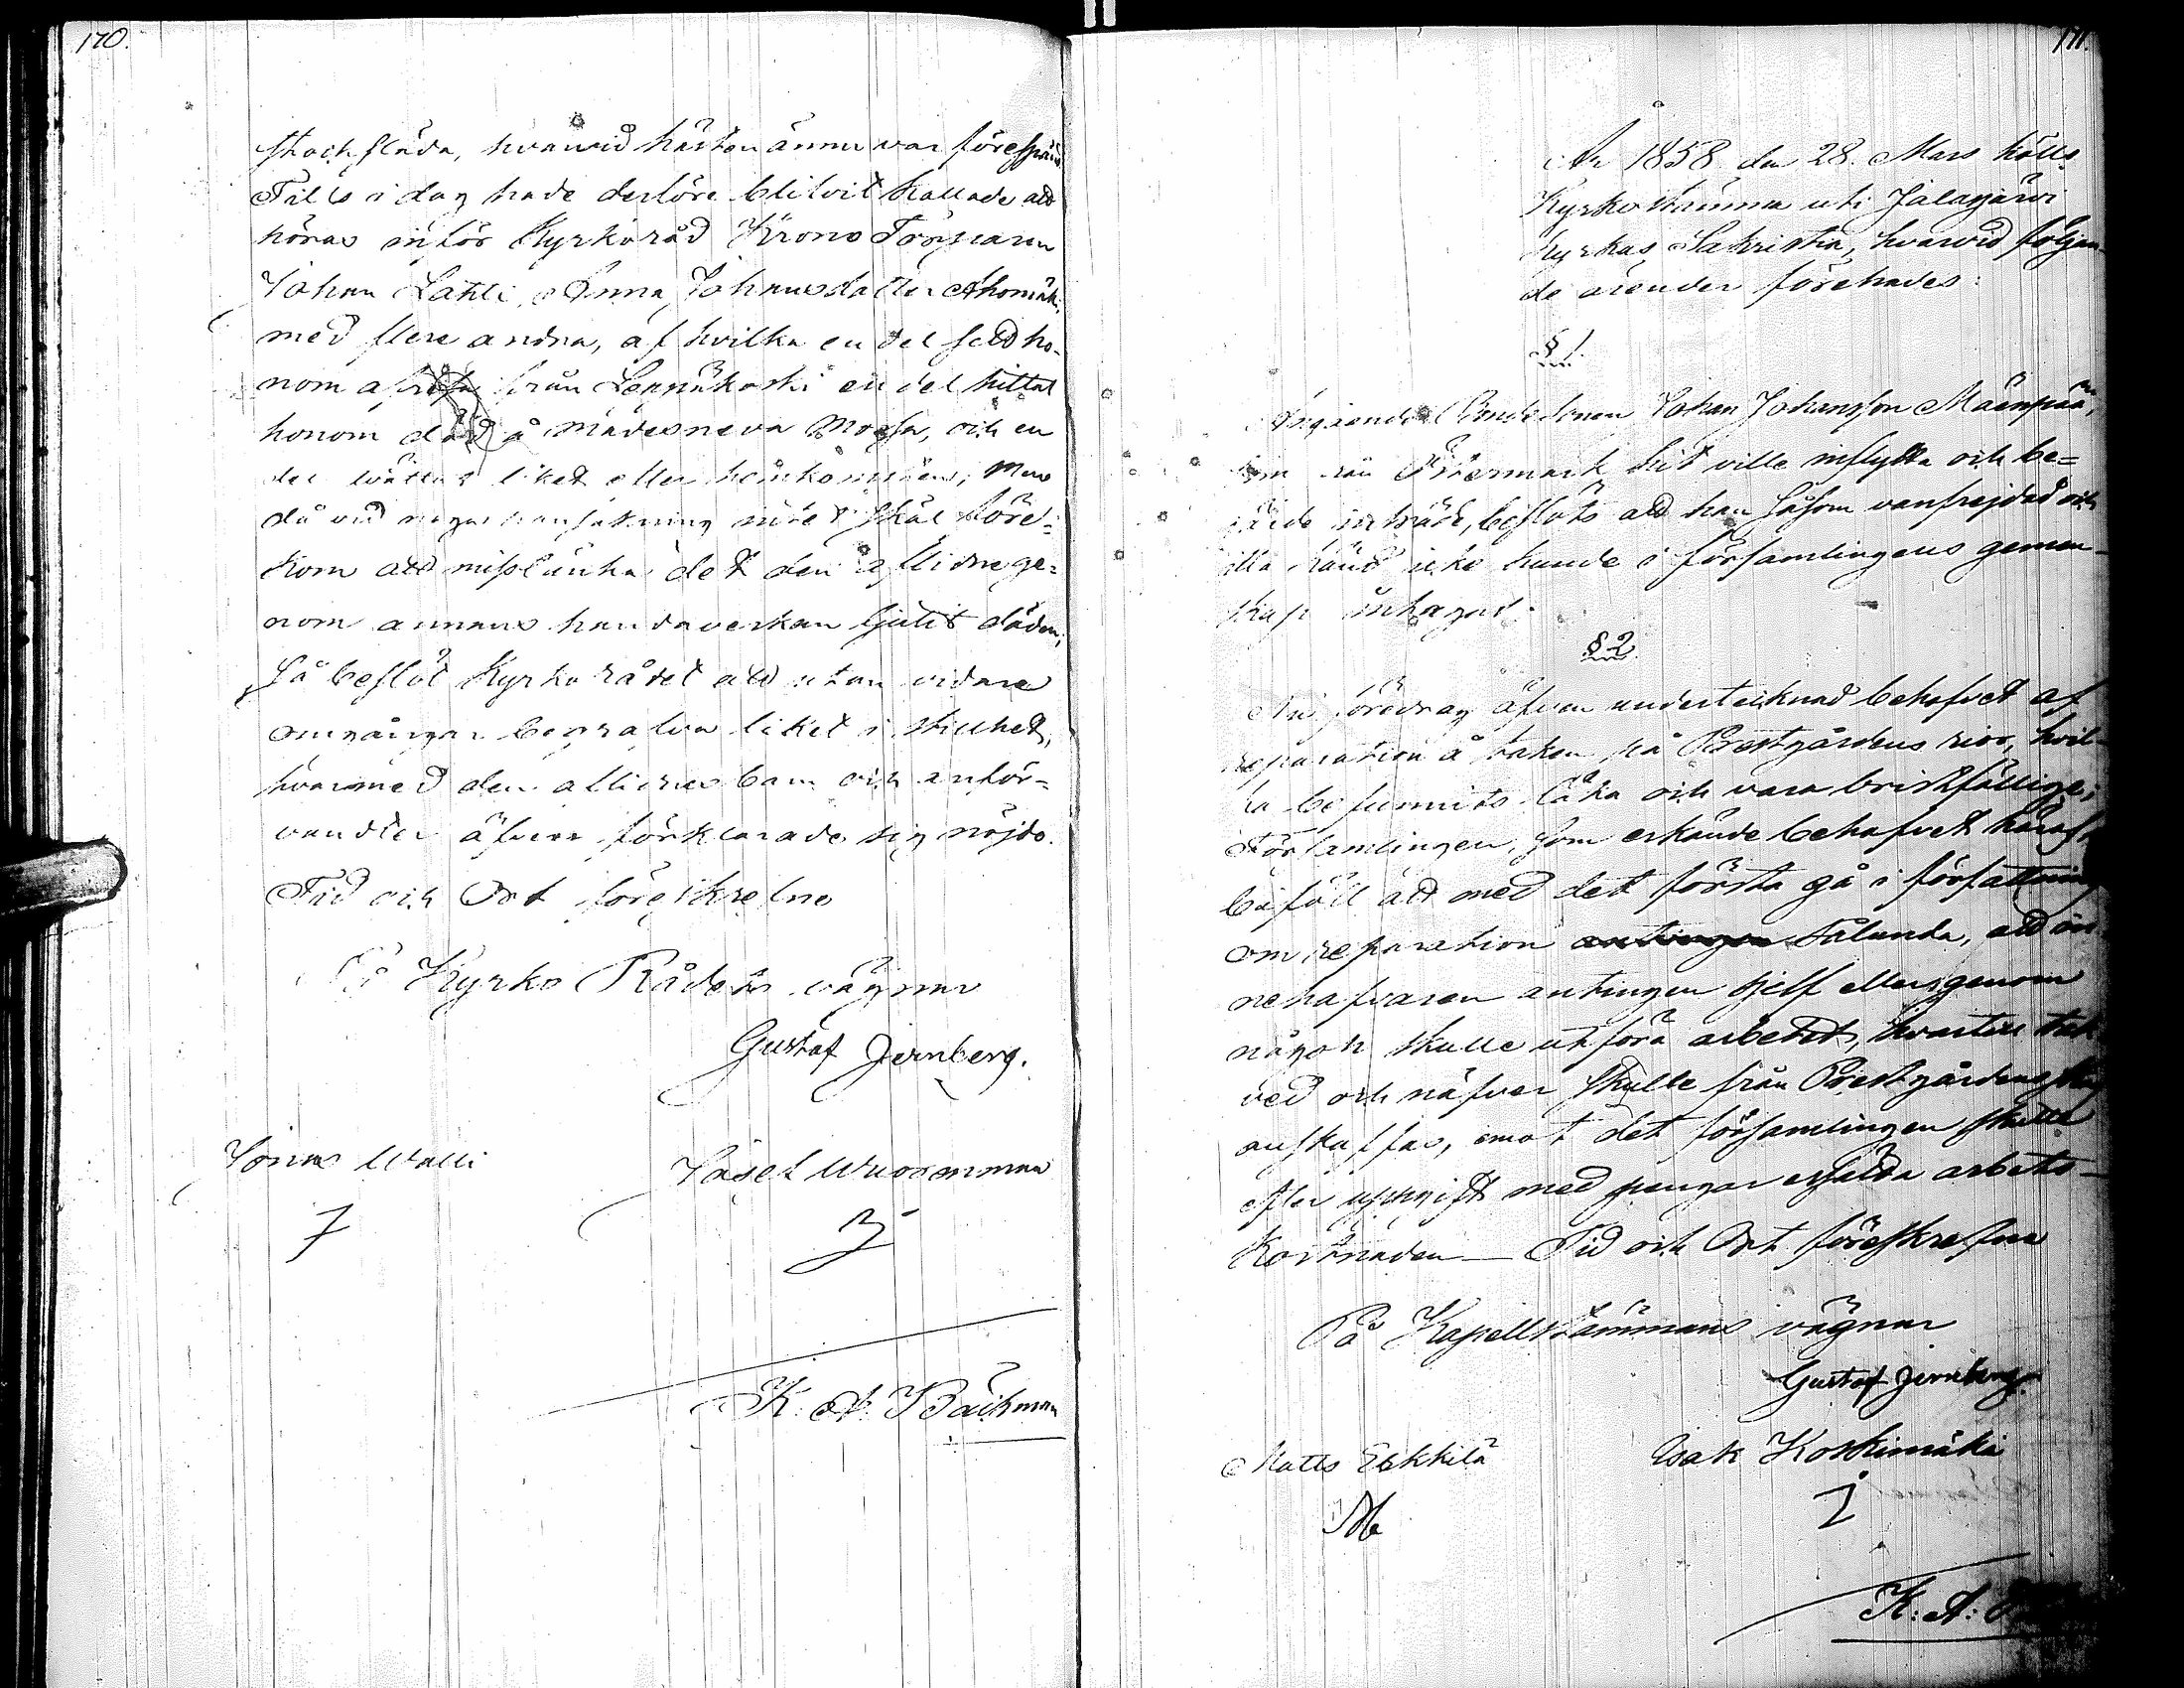 170.
stocksläda, hvarvid hästen ännu var förespänd
Till i dag hade derföre blifvit kallade att
höras inför Kyrkoråd Krono Torparen
Johan Lahti, Anna Johansdotter Ahomäki,
med flere andra, af hvilka en del sedt ho-
nom afresa från Leppäkoski en del hittat
honom död å Madesneva Mossa, och en
del tvättat liket efter hemkomsten; Men
då vid noga ransakning intet skäl före-
kom att misstänka det den aflidne ge-
nom annans handaverkan ljutit döden;
Så beslöt Kyrko rådet att utan vidare
omgångar begrafva liket i stillhet,
hvarmed den aflidnes barn och anför-
vandter äfven förklarade sig nöjde.
Tid och Ort föreskrefne
På Kyrko Rådets vägnar
Gustaf Jernberg.
Jonas Walli
Josef Wuorenmaa
K. A. Bäckman
171.
År 1858 den 28. Mars hölls
Kyrkostämma uti Jalasjärvi
Kyrkas Sakristia, hvarvid följan-
de ärender förehades:
§ 1.
Angående Bondesonen Johan Johansson Mäenpää,
som från Östermark hit ville inflytta och be-
gärde inträde, beslöts att han såsom vanfrejdad och
illa känd icke kunde i församlingens gemen-
skap intagas.
§ 2.
Nu föredrog äfven undertecknad behofvet af
reparation å taken på Prestgårdens rior, hvil-
ka befunnits läka och vara bristfällige;
Församlingen, som erkände behofvet häraf,
biföll att med det första gå i författning
om reparation antingen sålunda, att in-
nehafvaren antingen sjelf eller genom
någon skulle utföra arbetet, hvartill tak
ved och näfver skulle från Prestgårdens
anskaffas, emot det församlingen skulle
efter uppgift med pengar ersätta arbets-
kostnaden — Tid och Ort föreskrefna
På Kapellstämmans vägnar
Gustaf Jernberg.
Matts Eskkilä
Isak Koskimäki
K: A: